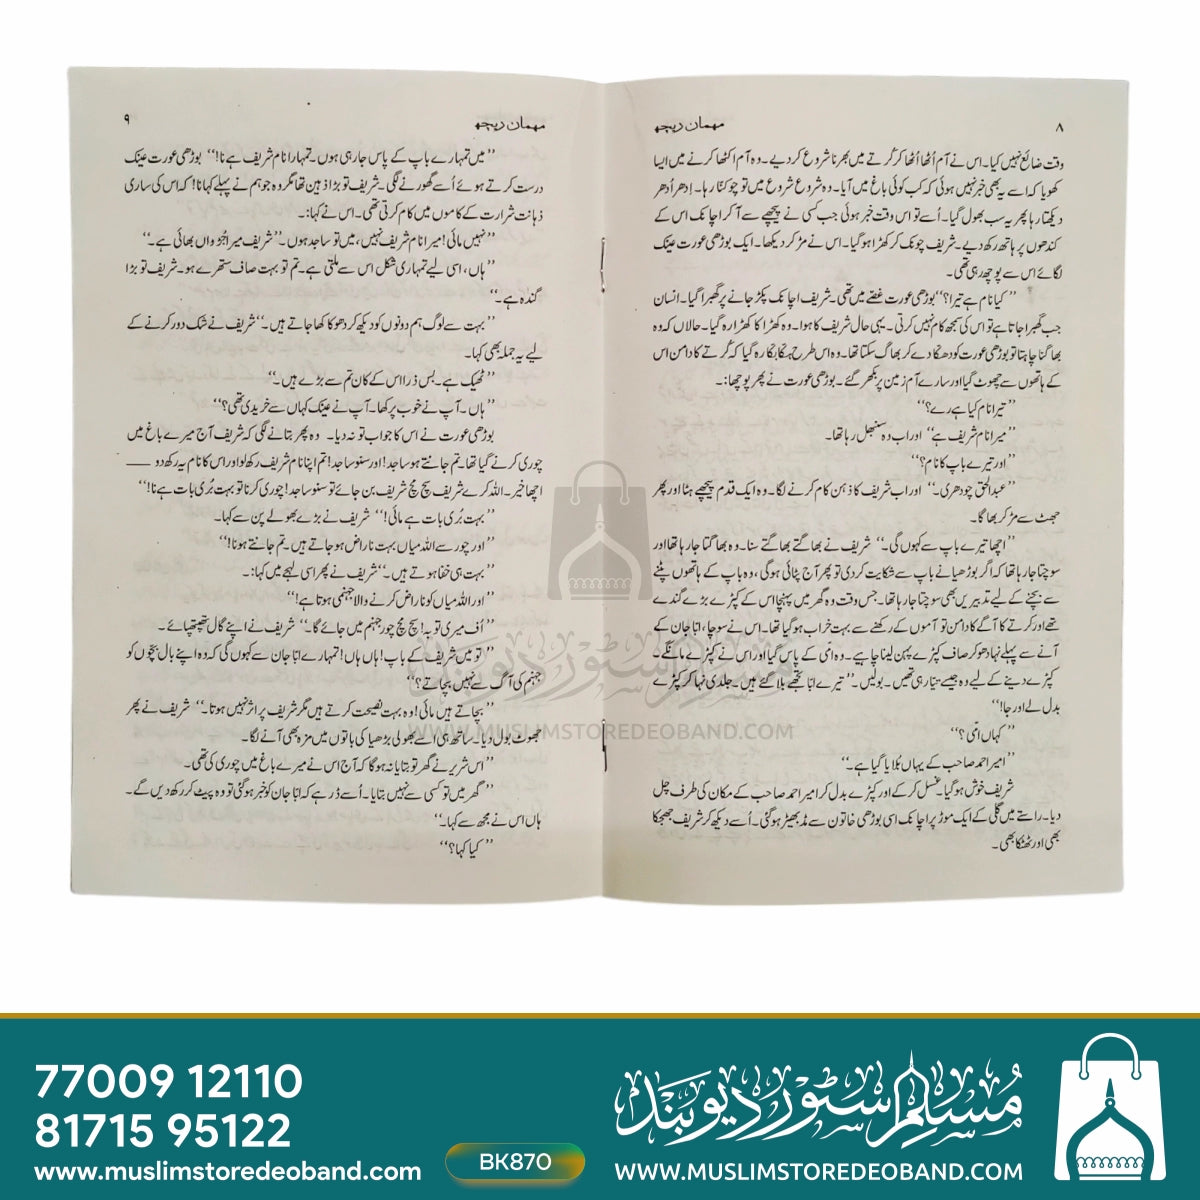 ۸
مہمان ریچھ
وقت ضائع نہیں کیا۔ اس نے آم اُٹھا اُٹھا کر کُرتے میں بھرنا شروع کر دیے۔ وہ آم اکٹھا کرنے میں ایسا
کھویا کہ اسے یہ بھی خبر نہیں ہوئی کہ کب کوئی باغ میں آیا۔ وہ شروع شروع میں تو چوکنّا رہا۔ اِدھر اُدھر
دیکھتا رہا پھر یہ سب بھول گیا۔ اُسے تو اس وقت خبر ہوئی جب کسی نے پیچھے سے آ کر اچانک اس کے
کندھوں پر ہاتھ رکھ دیے۔ شریف چونک کر کھڑا ہو گیا۔ اس نے مڑ کر دیکھا۔ ایک بوڑھی عورت عینک
لگائے اس سے پوچھ رہی تھی۔
”کیا نام ہے تیرا؟“ بوڑھی عورت غصّے میں تھی۔ شریف اچانک پکڑ جانے پر گھبرا گیا۔ انسان
جب گھبرا جاتا ہے تو اس کی سمجھ کام نہیں کرتی۔ یہی حال شریف کا ہوا۔ وہ کھڑا کا کھڑا رہ گیا۔ حالاں کہ وہ
بھاگنا چاہتا تو بوڑھی عورت کو دھکّا دے کر بھاگ سکتا تھا۔ وہ اس طرح ہکا بکا رہ گیا کہ کُرتے کا دامن اس
کے ہاتھوں سے چھوٹ گیا اور سارے آم زمین پر بکھر گئے۔ بوڑھی عورت نے پھر پوچھا:۔
”تیرا نام کیا ہے رے؟“
”میرا نام شریف ہے“ اور اب وہ سنبھل رہا تھا۔
”اور تیرے باپ کا نام؟“
”عبدالحق چودھری۔“ اور اب شریف کا ذہن کام کرنے لگا۔ وہ ایک قدم پیچھے ہٹا اور پھر
جھٹ سے مڑ کر بھاگا۔
”اچھا تیرے باپ سے کہوں گی۔“ شریف نے بھاگتے بھاگتے سنا۔ وہ بھاگتا جا رہا تھا اور
سوچتا جا رہا تھا کہ اگر بوڑھیا نے باپ سے شکایت کر دی تو پھر آج پٹائی ہوگی، وہ باپ کے ہاتھوں پٹنے
سے بچنے کے لیے تدبیریں بھی سوچتا جا رہا تھا۔ جس وقت وہ گھر میں پہنچا اس کے کپڑے بڑے گندے
تھے اور کرتے کا آگے کا دامن تو آموں کے رکھنے سے بہت خراب ہو گیا تھا۔ اس نے سوچا، ابّا جان کے
آنے سے پہلے نہا دھو کر صاف کپڑے پہن لینا چاہیے۔ وہ امّی کے پاس گیا اور اس نے کپڑے مانگے۔
کپڑے دینے کے لیے وہ جیسے تیار ہی تھیں۔ بولیں۔ ”تیرے ابّا تجھے بلا گئے ہیں۔ جلدی نہا کر کپڑے
بدل لے اور جا!“
”کہاں امّی؟“
”امیر احمد صاحب کے یہاں بُلایا گیا ہے۔“
شریف خوش ہو گیا۔ غسل کر کے اور کپڑے بدل کر امیر احمد صاحب کے مکان کی طرف چل
دیا۔ راستے میں گلی کے ایک موڑ پر اچانک اسی بوڑھی خاتون سے مڈبھیڑ ہو گئی۔ اُسے دیکھ کر شریف جھجکا
بھی اور ٹھٹکا بھی۔
مہمان ریچھ
۹
”میں تمہارے باپ کے پاس جا رہی ہوں۔ تمہارا نام شریف ہے نا!“ بوڑھی عورت عینک
درست کرتے ہوئے اُسے گھورنے لگی۔ شریف تو بڑا ذہین تھا مگر وہ جو ہم نے پہلے کہا نا! کہ اس کی ساری
ذہانت شرارت کے کاموں میں کام کرتی تھی۔ اس نے کہا:۔
”نہیں مائی! میرا نام شریف نہیں، میں تو ساجد ہوں۔“ شریف میرا جُڑواں بھائی ہے۔“
”ہاں، اسی لیے تمہاری شکل اس سے ملتی ہے۔ تم تو بہت صاف ستھرے ہو۔ شریف تو بڑا
گندہ ہے۔“
”بہت سے لوگ ہم دونوں کو دیکھ کر دھوکا کھا جاتے ہیں۔“ شریف نے شک دور کرنے کے
لیے یہ جملہ بھی کہا۔
”ٹھیک ہے۔ بس ذرا اس کے کان تم سے بڑے ہیں۔“
”ہاں۔ آپ نے خوب پرکھا۔ آپ نے عینک کہاں سے خریدی تھی؟“
بوڑھی عورت نے اس کا جواب تو نہ دیا۔ وہ پھر بتانے لگی کہ شریف آج میرے باغ میں
چوری کرنے گیا تھا۔ تم جانتے ہو ساجد! اور سنو ساجد! تم اپنا نام شریف رکھ لو اور اس کا نام یہ رکھ دو ——
اچھا خیر۔ اللہ کرے شریف سچ مچ شریف بن جائے تو سنو ساجد! چوری کرنا تو بہت بُری بات ہے نا!“
”بہت بُری بات ہے مائی!“ شریف نے بڑے بھولے پن سے کہا۔
”اور چور سے اللہ میاں بہت ناراض ہو جاتے ہیں۔ تم جانتے ہو نا!“
”بہت ہی خفا ہوتے ہیں۔“ شریف نے پھر اسی لہجے میں کہا:۔
”اور اللہ میاں کو ناراض کرنے والا جہنمی ہوتا ہے!“
”اُف میری توبہ! سچ مچ چور جہنم میں جائے گا۔“ شریف نے اپنے گال تھپتھپائے۔
”تو میں شریف کے باپ! ہاں ہاں! تمہارے ابّا جان سے کہوں گی کہ وہ اپنے بال بچّوں کو
جہنم کی آگ سے نہیں بچاتے؟“
”بچاتے ہیں مائی! وہ بہت نصیحت کرتے ہیں مگر شریف پر اثر نہیں ہوتا۔“ شریف نے پھر
جھوٹ بول دیا۔ ساتھ ہی اسے بھولی بڑھیا کی باتوں میں مزہ بھی آنے لگا۔
”اس شریر نے گھر تو بتایا نہ ہوگا کہ آج اس نے میرے باغ میں چوری کی تھی۔
”گھر میں تو کسی سے نہیں بتایا۔ اُسے ڈر ہے کہ ابّا جان کو خبر ہو گئی تو وہ پیٹ کر رکھ دیں گے۔
ہاں اس نے مجھ سے کہا۔“
”کیا کہا؟“
مسلم اسٹور دیوبند
WWW.MUSLIMSTOREDEOBAND.COM
77009 12110
81715 95122
www.muslimstoredeoband.com
BK870
مُسلم اسٹور دیوبند
WWW.MUSLIMSTOREDEOBAND.COM